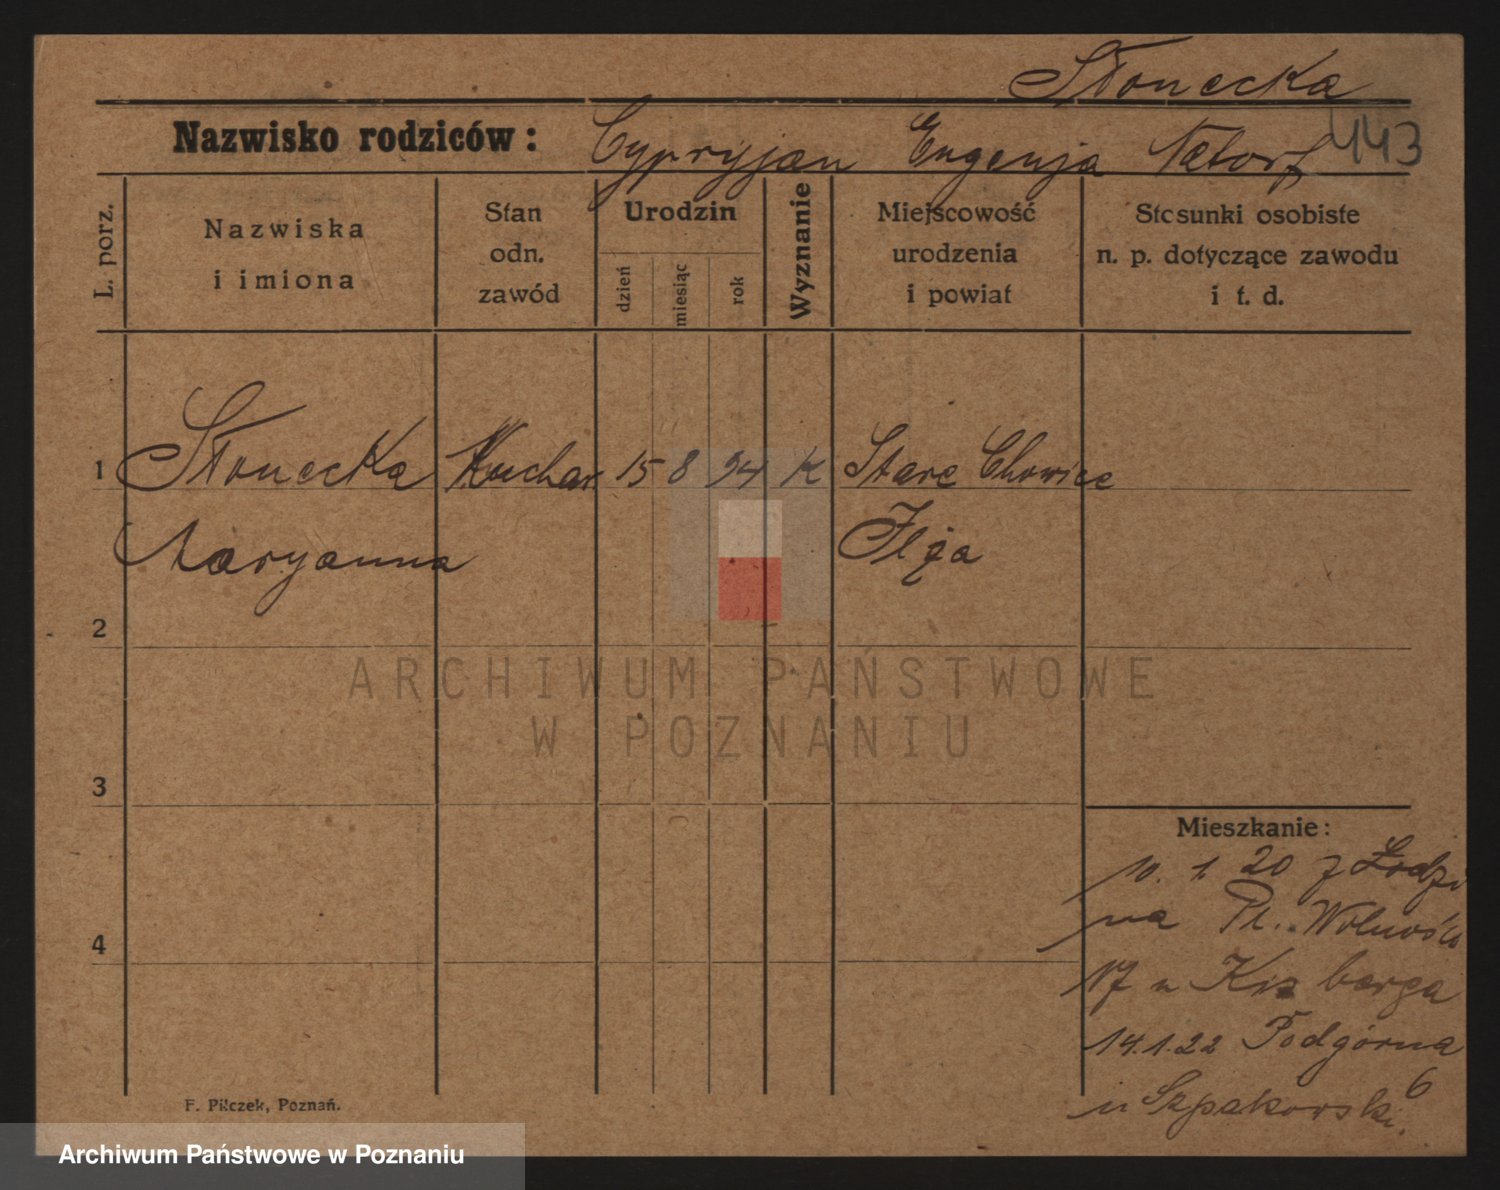 Słonecka
Nazwisko rodziców: Cypryjan Eugenja Natorf
443
L. porz.
Nazwiska
i imiona
Stan
odn.
zawód
Urodzin
dzień
miesiąc
rok
Wyznanie
Miejscowość
urodzenia
i powiat
Stosunki osobiste
n. p. dotyczące zawodu
i t. d.
1 Słonecka Kuchar. 15 8 94 K Stare Chowice
Maryanna Ilża
2
ARCHIWUM PAŃSTWOWE
W POZNANIU
3
Mieszkanie:
10. 1. 20 z Łodzi
na Pl. Wolności
4
17 u
14.1.22 Podgórna
6
u Szpakowski.
F. Pilczek, Poznań.
Archiwum Państwowe w Poznaniu